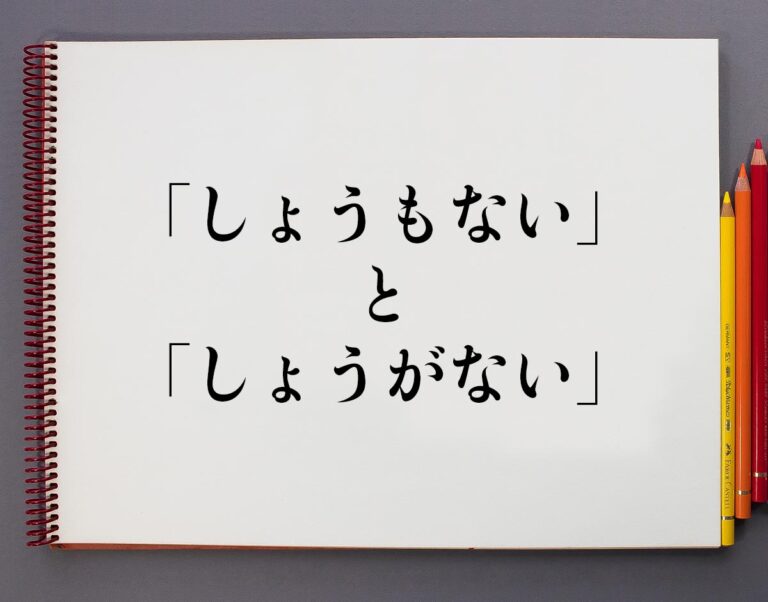 「しょうもない」
と
「しょうがない」
FABER-CASTELL